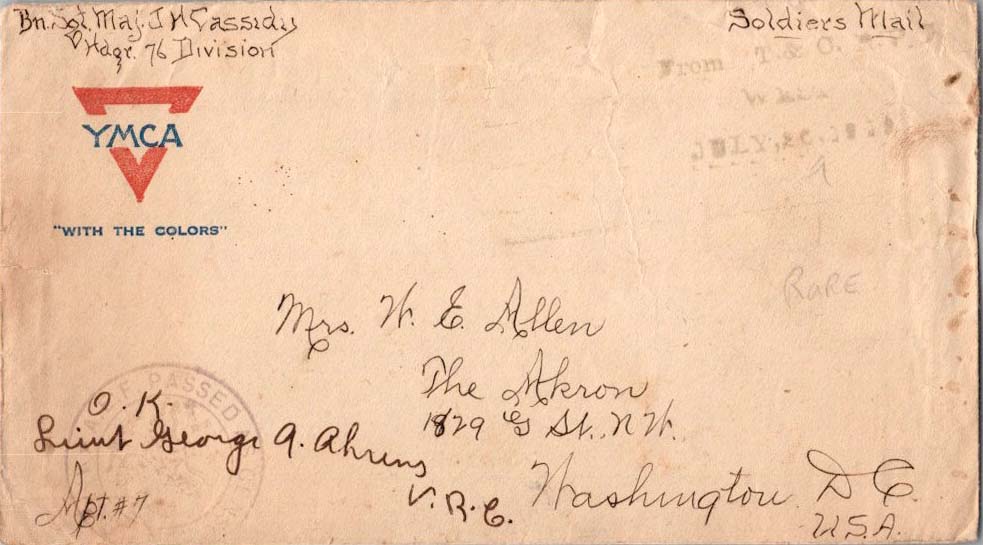 Bn. Sgt. Maj. J H Cassidy
Hdqr. 76 Division
Soldiers Mail
From T. & O.
JULY, 1918
YMCA
"WITH THE COLORS"
RARE
Mrs. W. E. Allen
The Akron
1829 G St., N.W.
Washington D C.
U.S.A.
PASSED
O. K.
Lieut George A. Ahrens
V. R. C.
Apt. #7